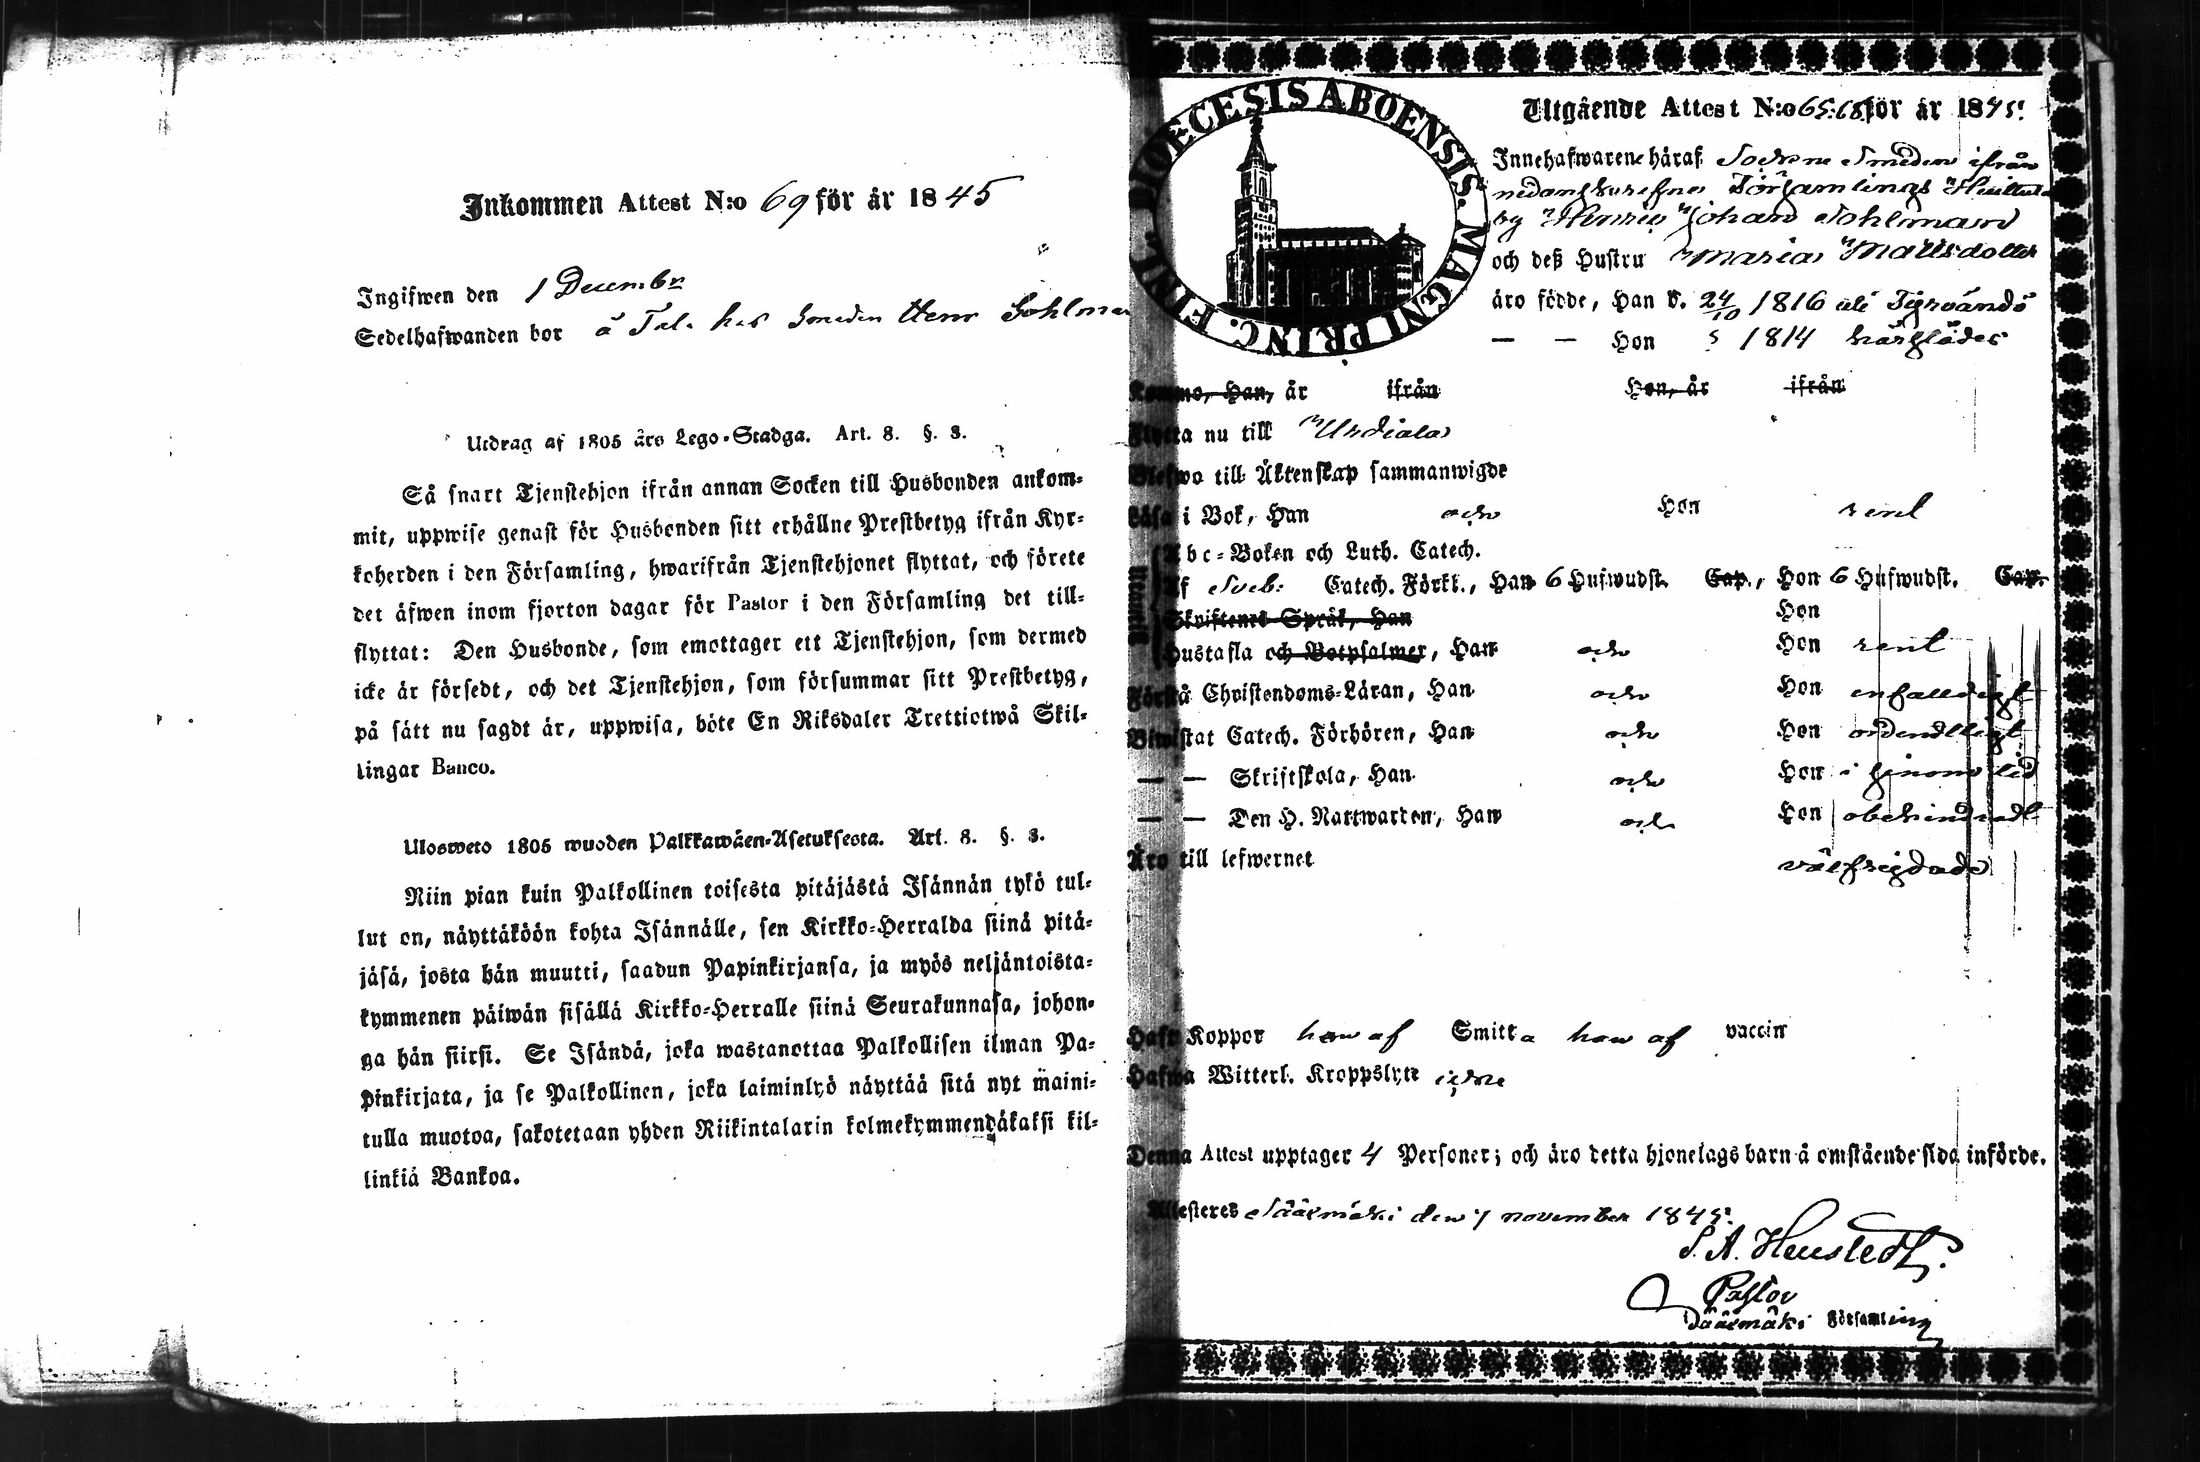 Inkommen Attest N:o 69 för år 1845
Ingifwen den 1 Decembr
Sedelhafwanden bor å Tal. hos Smeden Henr Sohlman
Utdrag af 1805 års Lego-Stadga. Art. 8. §. 8.
Så snart Tjenstehjon ifrån annan Socken till Husbonden ankom-
mit, uppwise genast för Husbonden sitt erhållne Prestbetyg ifrån Kyr-
koherden i den Församling, hwarifrån Tjenstehjonet flyttat, och förete
det äfwen inom fjorton dagar för Pastor i den Församling det till-
flyttat: Den Husbonde, som emottager ett Tjenstehjon, som dermed
icke är försedt, och det Tjenstehjon, som försummar sitt Prestbetyg,
på sätt nu sagdt är, uppwisa, böte En Riksdaler Trettiotwå Skil-
lingar Banco.
Ulosweto 1805 wuoden Palkkawäen-Asetuksesta. Art. 8. §. 8.
Niin pian kuin Palkollinen toisesta pitäjästä Isännän tykö tul-
lut on, näyttäköön kohta Isännälle, sen Kirkko-Herralda siinä pitä-
jäsä, josta hän muutti, saadun Papinkirjansa, ja myös neljäntoista-
kymmenen päiwän sisällä Kirkko-Herralle siinä Seurakunnasa, johon-
ga hän siirsi. Se Isändä, joka wastanottaa Palkollisen ilman Pa-
pinkirjata, ja se Palkollinen, joka laiminlyö näyttää sitä nyt maini-
tulla muotoa, sakotetaan yhden Riikintalarin kolmekymmendäkaksi kil-
linkiä Bankoa.
DIOECESIS ABOENSIS. MAGNI PRINC. FINL.
Utgående Attest N:o 65.68 för år 1845.
Innehafwarene häraf Sockne Smeden ifrån
nedanskrefne Församlings Huittula
by Henric Johan Sohlman
och deß Hustru Maria Mattsdotter
äro födde, Han d. 24/10 1816 uti Tyrvändö
— — Hon 1814 härstädes
Komne, Han, år ifrån Hon, år ifrån
Flytta nu till Urdiala
Blefwo till Äktenskap sammanwigde
Läsa i Bok, Han och Hon rent
Abc-Boken och Luth. Catech.
Af Sveb: Catech. Förkl., Han 6 Hufwudst. Cap., Hon 6 Hufwudst. Cap.
Skriftenes Språk, Han Hon
Hustafla och Botpsalmer, Han och Hon rent
Förstå Christendoms-Läran, Han och Hon enfalldigt
Biwistat Catech. Förhören, Han och Hon ordendtligt
— — Skriftskola, Han och Hon i sinom tid
— — Den H. Nattwarden, Han och Hon obehindradt
Äro till lefwernet välfrejdade
Haft Koppor haw af Smitta haw af vaccin
Hafwa Witterl. Kroppslyte icke
Denna Attest upptager 4 Personer; och äro detta hjonelags barn å omstående sida införde.
Attesteres Sääxmäki den 7 november 1845.
Pastor
Sääxmäki Församling